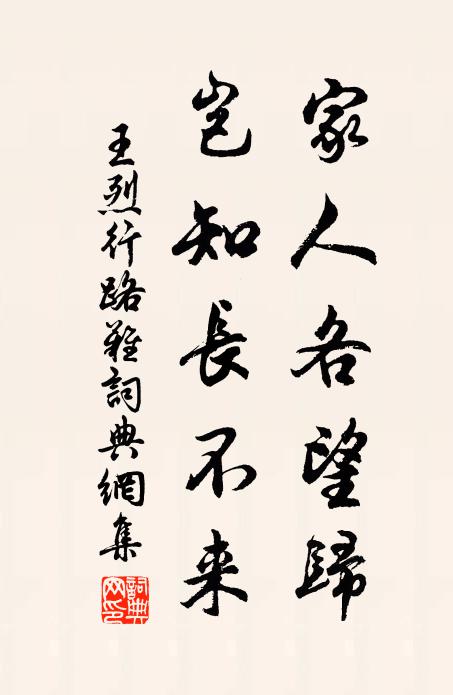 家人各望歸
豈知長不来
王烈行路難詞典網集
詞典网印